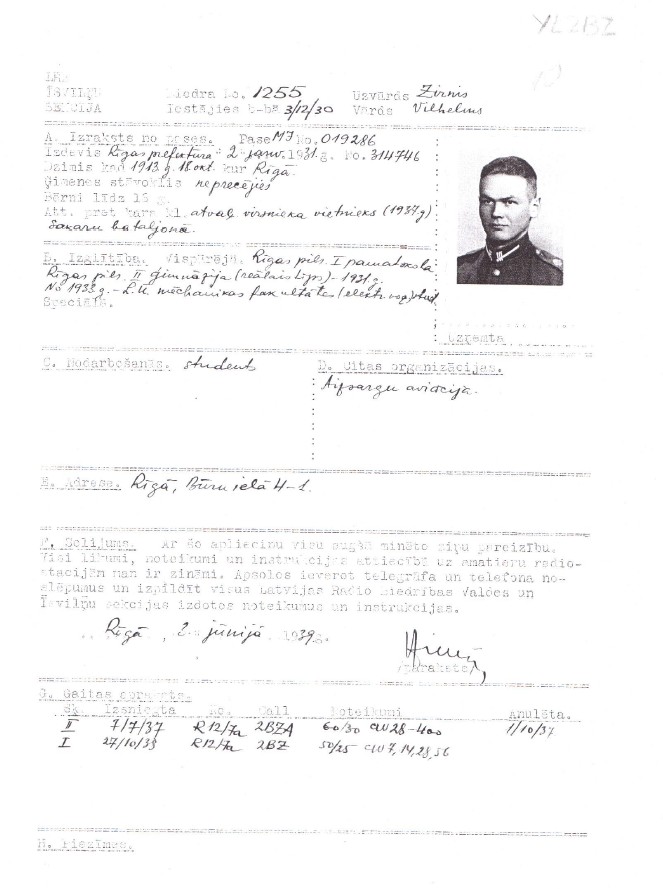 YL2BZ
LRB
ĪSVIĻŅU Biedra No. 1255 Uzvārds Zirnis
SEKCIJA Iestājies b-bā 3/12/30 Vārds Vilhelms
A. Izraksts no pases. Pase MJ No. 019286
Izdevis Rīgas prefektūra 2. janv. 1931.g. No. 314746
Dzimis kad 1913.g. 18. okt. kur Rīgā.
Ģimenes stāvoklis neprecējies
Bērni līdz 18 g.
Att. pret kara kl. atvaļ. virsnieka vietnieks (1937.g)
Sakaru bataljonā.
B. Izglītība. Vispārējā. Rīgas pils. I pamatskola
Rīgas pils. II ģimnāzija (reālais tips) - 1931.g.
No 1933.g. - L.U. mēchanikas fakultātes (elektr. nod.) stud.
Speciālā.
Uzņemta
C. Nodarbošanās. students
D. Citas organizācijas.
Aizsargu aviācija.
E. Adrese. Rīgā, Būru ielā 4-1.
F. Solījums. Ar šo apliecinu visu augšā minēto ziņu pareizību.
Visi likumi, noteikumi un instrukcijas attiecībā uz amatieru radio-
stacijām man ir zināmi. Apsolos ievērot telegrāfa un telefona no-
slēpumus un izpildīt visus Latvijas Radio Biedrības Valdes un
Īsviļņu sekcijas izdotos noteikumus un instrukcijas.
Rīgā, 2. jūnijā 1939.g.
(paraksts)
G. Gaitas apraksts.
Šk. Izsniegta No. Call Noteikumi Anulēta.
II 7/7/37 R12/7a 2BZA 60/30 CW 28-400 1/10/37
I 27/10/38 R12/7a 2BZ 50/25 CW 7, 14, 28, 56
H. Piezīmes.